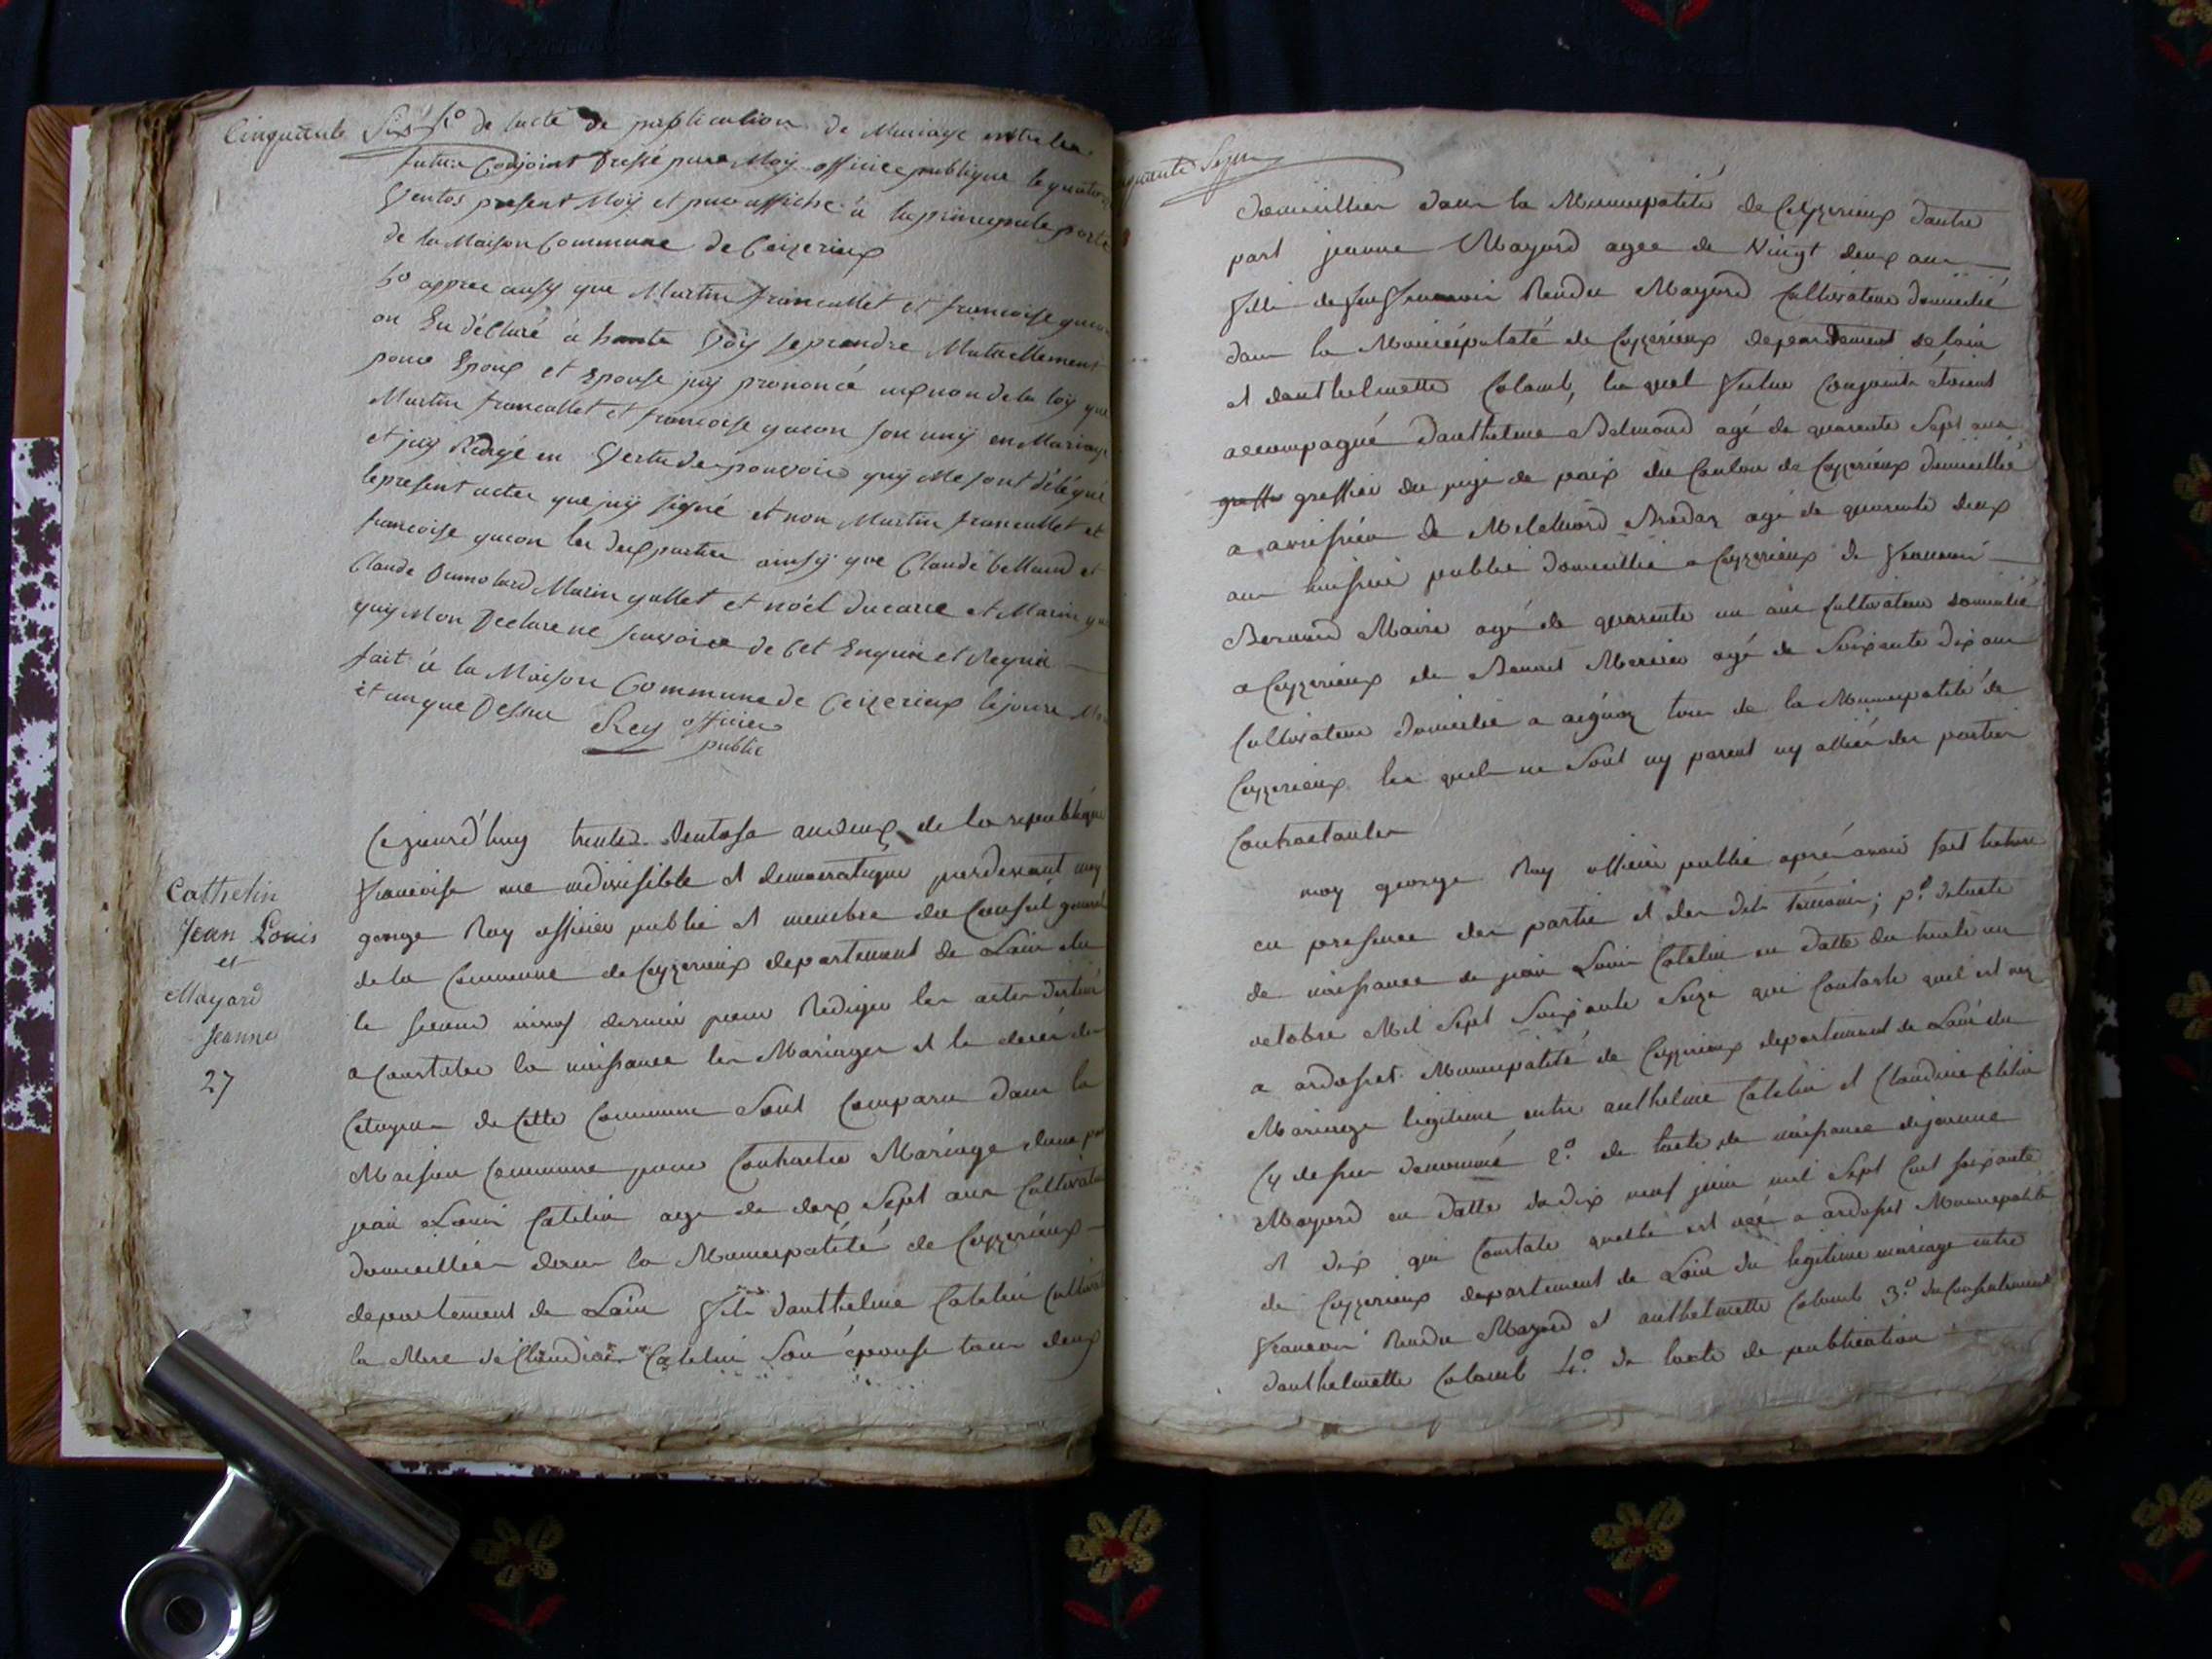 Cinquante Six 4º de lacte de publication de Mariage entre les
futur Conjoint dressé parce Moy officier publique le quatorze
Ventos present Moy et puce affiche à la principale porte
de la Maison Commune de Ceizerieux
5º appree aussy que Martin francallet et francoise gucon
on Eu déClaré à haute Voÿ se prendre Mutuellement
pour Epoux et Epouse jay prononcé au non de la loy que
Martin francallet et francoise gucon son uny en Mariage
et jay Redigé en Vertu des pouvoir quy Me sont délégué
le present acter que jay signé et non Martin francallet et
francoise gucon les dux parties ainsy que Claude belland et
Claude Dumolard Marin gallet et noël ducarre et Marin
quy Mon Declare ne scavoire de Cet Enquir et Requir
fait à la Maison Commune de Ceizerieux le joure Mois
et an que Dessu Rey officier
public
Cathelin
Jean Louis
et
Mayard
Jeanne
27
Cejourd'huy trente Ventose an deux de la republique
francoise une indivisible et democratique pardevant moy
george Roy officier public et membre du Conseil general
de la Commune de Ceyzerieux departement de Lain elu
le second nivos dernier pour Rediger les actes destiné
a Constater la naissance les Mariages et le decés des
Citoyens de Cette Commune Sont Comparu dans la
Maison Commune pour Contracter Mariage dune part
jean Louis Catelin age de dix Sept ans Cultivateur
domicillier dans la Municipatité de Ceyzerieux
departement de Lain fils danthelme Catelin Cultivateur
la Mere de Claudine Catelin Son épouse tous deux
cinquante Sept
domicillier dans la Municipatité de Ceyzerieux dautre
part jeanne Mayord agee de Vingt deux ans
fille de feu francois Rendu Mayord Cultivateur domicilié
dans la Municipatité de Ceyzerieux departement de lain
et danthelmette Colomb, les quel futur Conjoints étoient
accompagné danthelme Belmond agé de quarente Sept ans
greffie greffier du juge de paix du Canton de Ceyzerieux domicillié
a avrissieu de Melchiord Bredaz agé de quarente deux
ans huissier public domicillié a Ceyzerieux de francois
Bernard Maire agé de quarente un ans Cultivateur domicilié
a Ceyzerieux de Benoit Mercier agé de Soixante dix ans
Cultivateur domicilié a aignoz tous de la Municipatité de
Ceyzerieux les quels ne Sont ny parent ny allié des parties
Contractantes
moy george Roy officier public aprés avoir fait lecture
en presence des partie et des dits témoins; pº. de lacte
de naissance de jean Louis Catelin en datte du trente un
octobre Mil Sept Soixante Seize qui Constate quil est nez
a ardosset Municipatité de Ceyzerieux departement de Lain du
Mariage legitime entre anthelme Catelin et Claudine Catelin
Cy dessus denommé 2º. de lacte de naissance de jeanne
Mayord en datte du dix neuf juin mil Sept Cent soixante
et dix qui Constate quelle est née a ardosset Municipatité
de Ceyzerieux departement de Lain du legitime mariage entre
francois Rendu Mayord et anthelmette Colomb 3º. du Consentement
danthelmette Colomb 4º. de lacte de publication